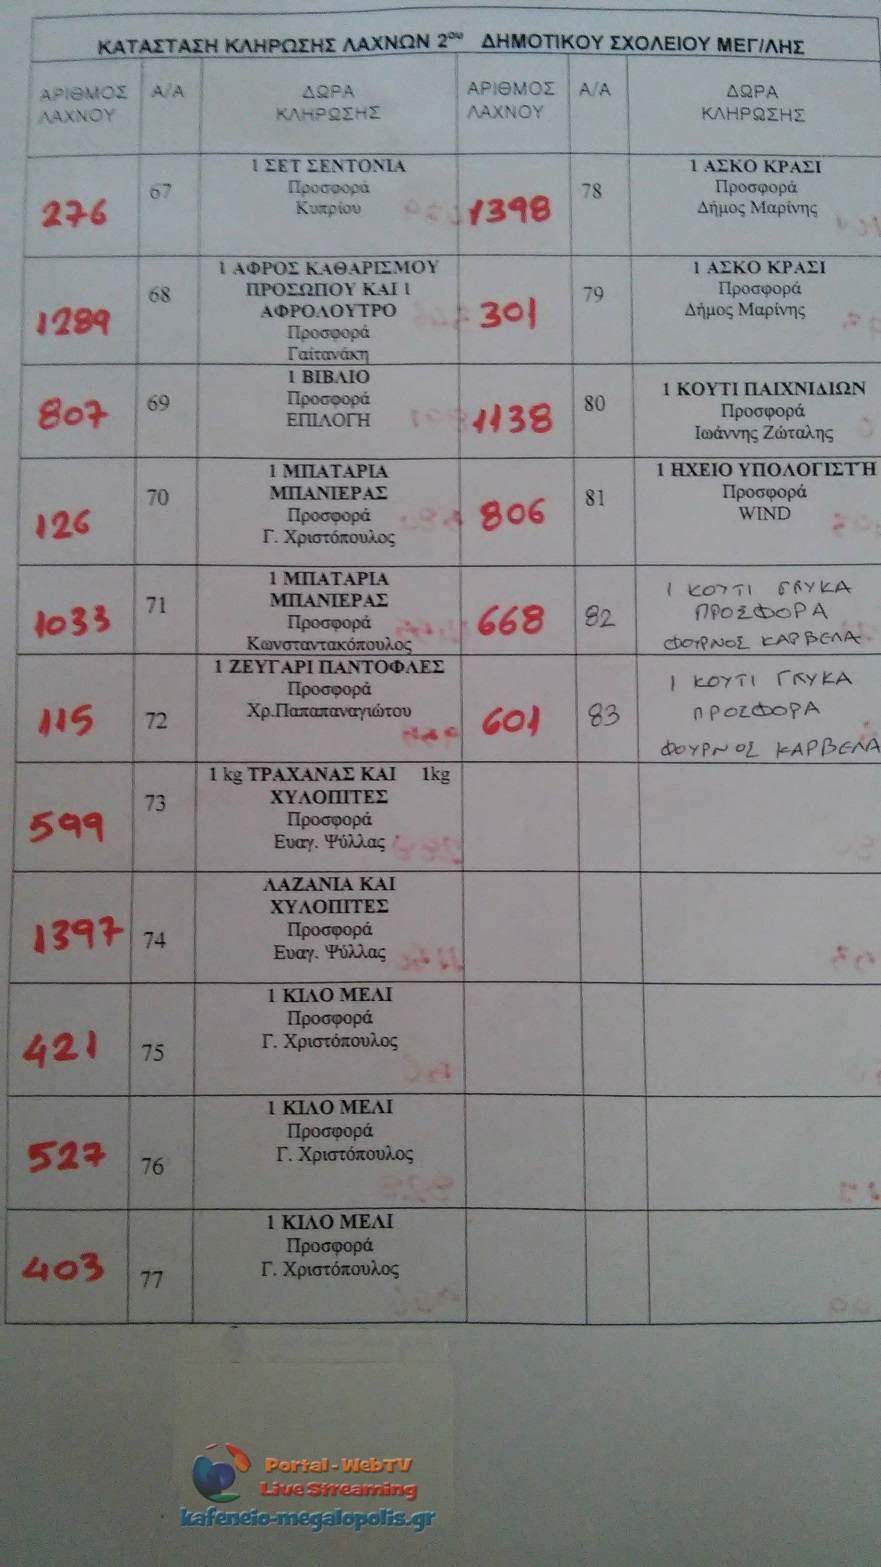 ΚΑΤΑΣΤΑΣΗ ΚΛΗΡΩΣΗΣ ΛΑΧΝΩΝ 2ου ΔΗΜΟΤΙΚΟΥ ΣΧΟΛΕΙΟΥ ΜΕΓ/ΛΗΣ
ΑΡΙΘΜΟΣ ΛΑΧΝΟΥ
Α/Α
ΔΩΡΑ ΚΛΗΡΩΣΗΣ
ΑΡΙΘΜΟΣ ΛΑΧΝΟΥ
Α/Α
ΔΩΡΑ ΚΛΗΡΩΣΗΣ
276
67
1 ΣΕΤ ΣΕΝΤΟΝΙΑ
Προσφορά
Κυπρίου
1398
78
1 ΑΣΚΟ ΚΡΑΣΙ
Προσφορά
Δήμος Μαρίνης
1289
68
1 ΑΦΡΟΣ ΚΑΘΑΡΙΣΜΟΥ
ΠΡΟΣΩΠΟΥ ΚΑΙ 1
ΑΦΡΟΛΟΥΤΡΟ
Προσφορά
Γαϊτανάκη
301
79
1 ΑΣΚΟ ΚΡΑΣΙ
Προσφορά
Δήμος Μαρίνης
807
69
1 ΒΙΒΛΙΟ
Προσφορά
ΕΠΙΛΟΓΗ
1138
80
1 ΚΟΥΤΙ ΠΑΙΧΝΙΔΙΩΝ
Προσφορά
Ιωάννης Ζώταλης
126
70
1 ΜΠΑΤΑΡΙΑ
ΜΠΑΝΙΕΡΑΣ
Προσφορά
Γ. Χριστόπουλος
806
81
1 ΗΧΕΙΟ ΥΠΟΛΟΓΙΣΤΗ
Προσφορά
WIND
1033
71
1 ΜΠΑΤΑΡΙΑ
ΜΠΑΝΙΕΡΑΣ
Προσφορά
Κωνσταντακόπουλος
668
82
1 ΚΟΥΤΙ ΓΛΥΚΑ
ΠΡΟΣΦΟΡΑ
ΦΟΥΡΝΟΣ ΚΑΡΒΕΛΑ
115
72
1 ΖΕΥΓΑΡΙ ΠΑΝΤΟΦΛΕΣ
Προσφορά
Χρ.Παπαπαναγιώτου
601
83
1 ΚΟΥΤΙ ΓΛΥΚΑ
ΠΡΟΣΦΟΡΑ
ΦΟΥΡΝΟΣ ΚΑΡΒΕΛΑ
599
73
1 kg ΤΡΑΧΑΝΑΣ ΚΑΙ 1kg
ΧΥΛΟΠΙΤΕΣ
Προσφορά
Ευαγ. Ψύλλας
1397
74
ΛΑΖΑΝΙΑ ΚΑΙ
ΧΥΛΟΠΙΤΕΣ
Προσφορά
Ευαγ. Ψύλλας
421
75
1 ΚΙΛΟ ΜΕΛΙ
Προσφορά
Γ. Χριστόπουλος
527
76
1 ΚΙΛΟ ΜΕΛΙ
Προσφορά
Γ. Χριστόπουλος
403
77
1 ΚΙΛΟ ΜΕΛΙ
Προσφορά
Γ. Χριστόπουλος
Portal - WebTV
Live Streaming
kafeneio-megalopolis.gr